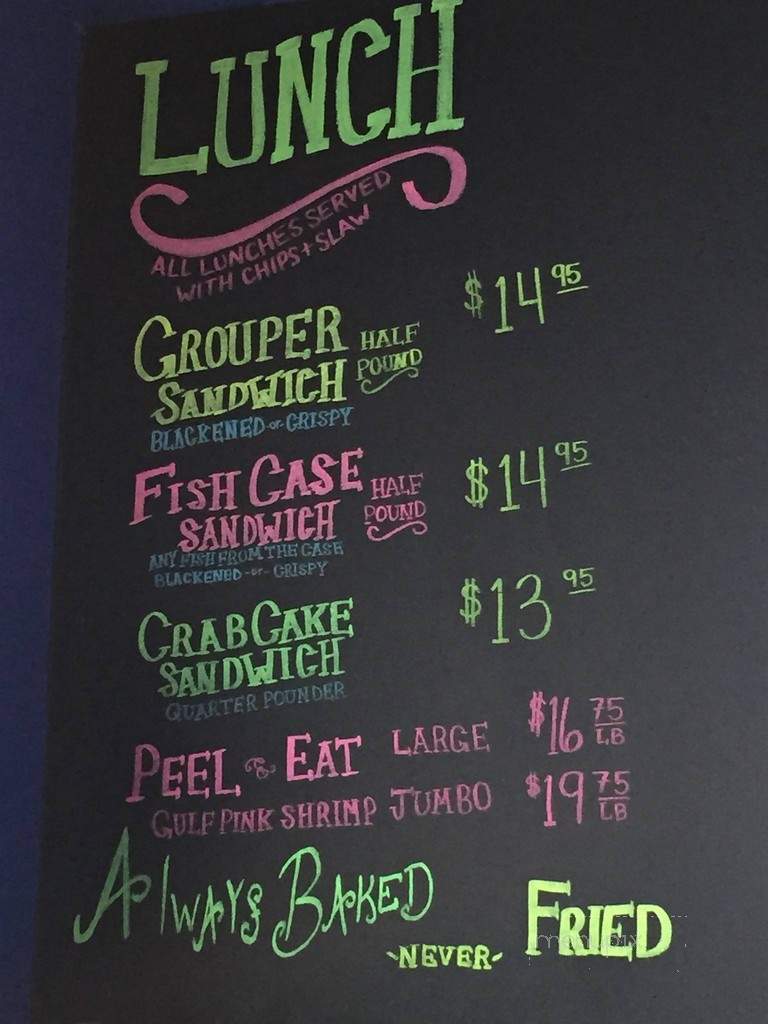 LUNCH
ALL LUNCHES SERVED
WITH CHIPS + SLAW
GROUPER HALF $14 95
SANDWICH POUND
BLACKENED -or- CRISPY
FISH CASE HALF $14 95
SANDWICH POUND
ANY FISH FROM THE CASE
BLACKENED -or- CRISPY
CRAB CAKE $13 95
SANDWICH
QUARTER POUNDER
PEEL & EAT LARGE $16 75 LB
GULF PINK SHRIMP JUMBO $19 75 LB
Always BAKED
-NEVER- FRIED
menupix